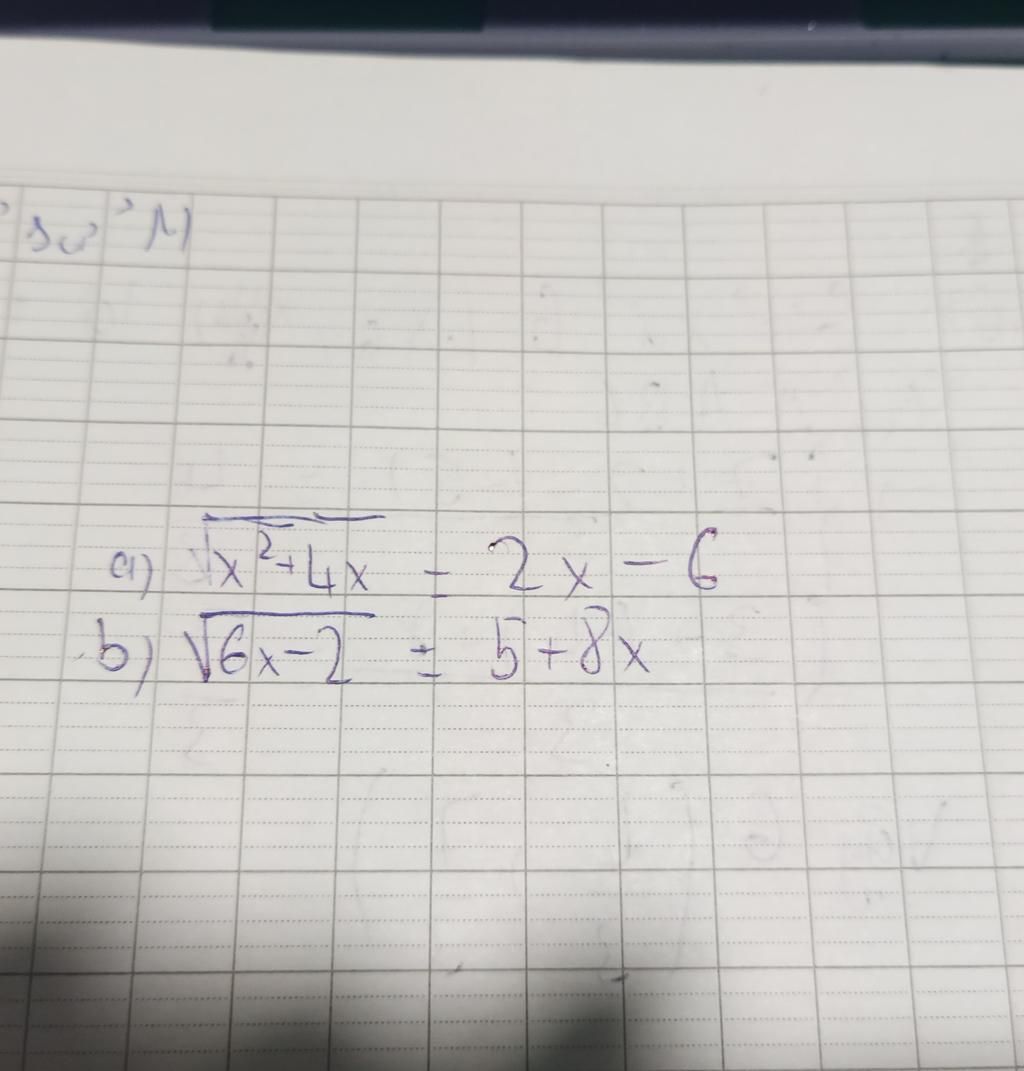 a) √x²+4x = 2x - 6
b) √6x-2 = 5+8x